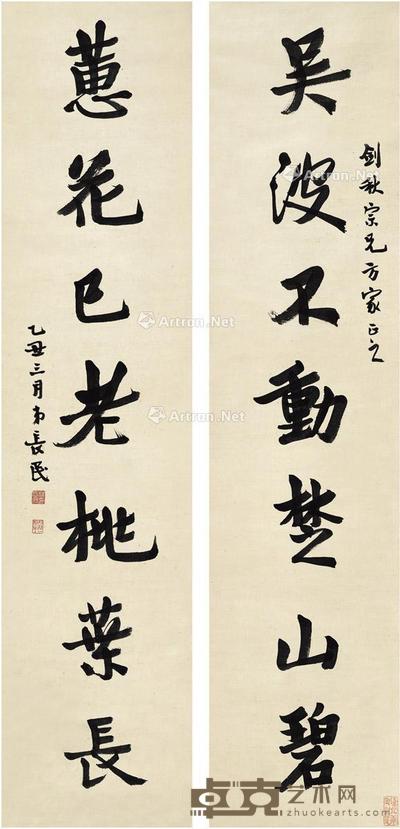 剑秋宗兄方家正之
吴波不動楚山碧
蕙花已老桃葉長
乙丑三月弟長民
Artron.Net
Artron.Net
Artron.Net
Artron.Net
卓克艺术网
zhuokearts.com